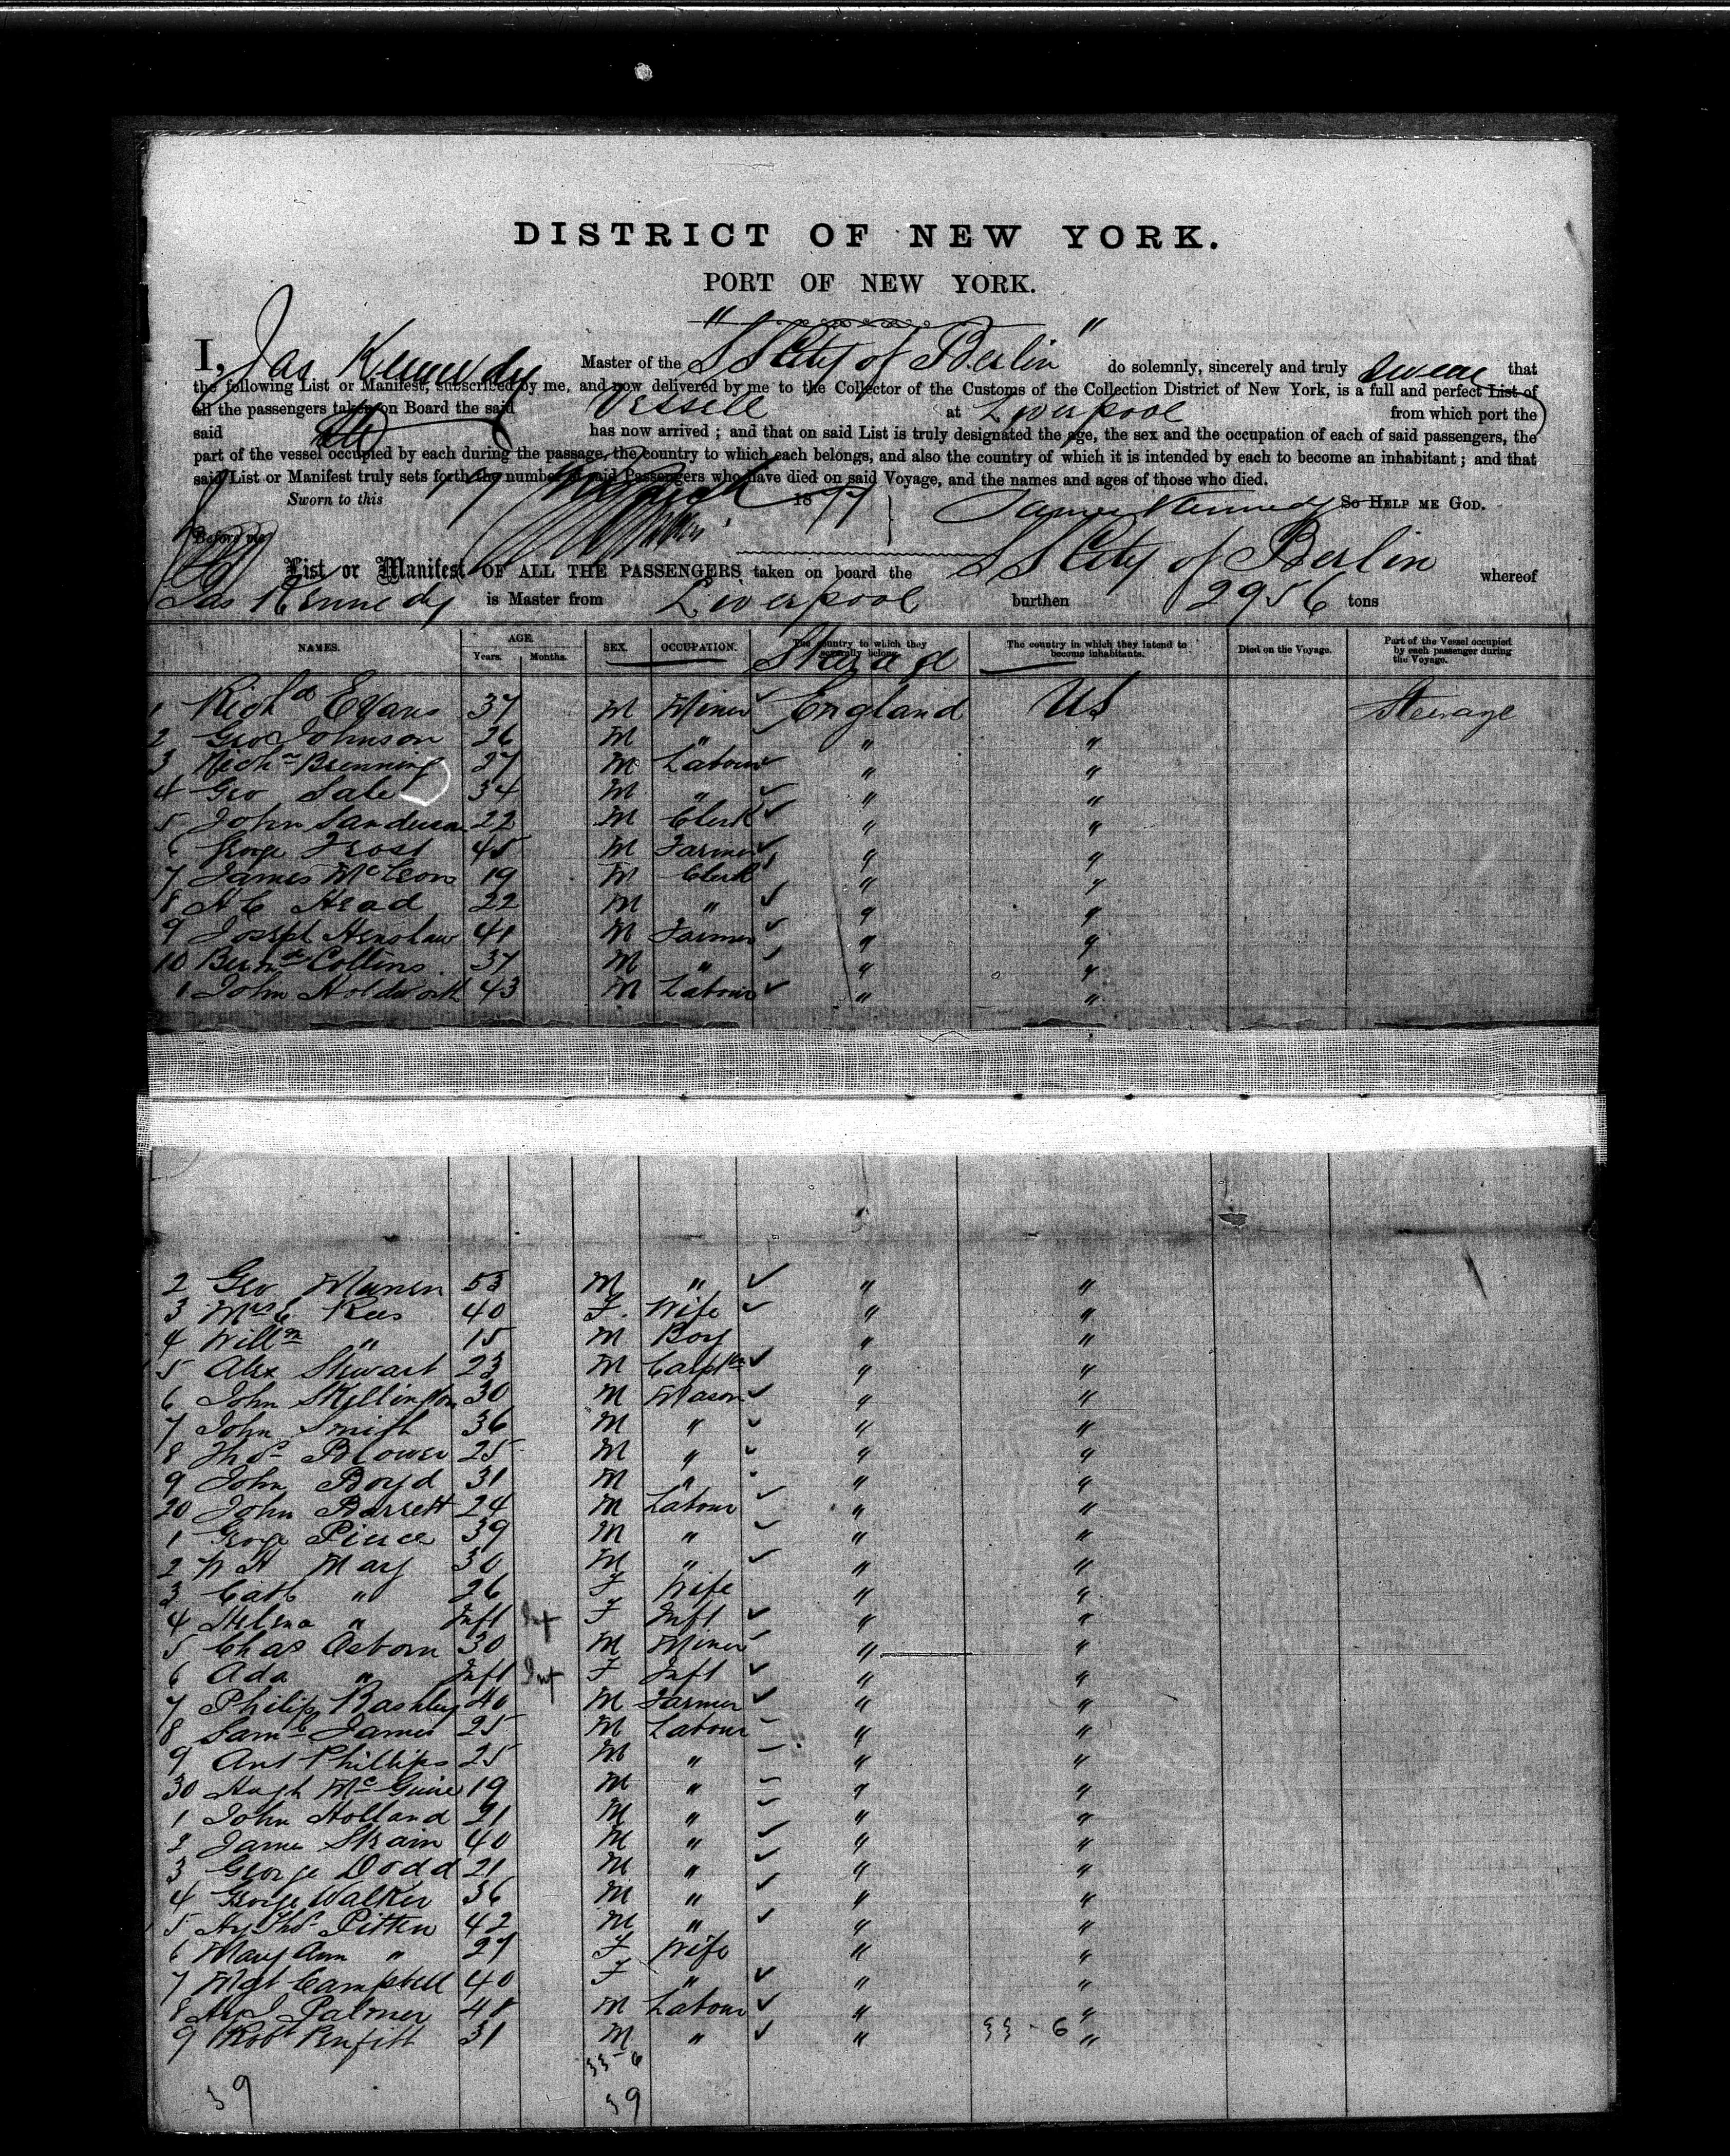 DISTRICT OF NEW YORK.
PORT OF NEW YORK.
I, Jas Kennedy Master of the "SS City of Berlin" do solemnly, sincerely and truly swear that
the following List or Manifest, subscribed by me, and now delivered by me to the Collector of the Customs of the Collection District of New York, is a full and perfect List of
all the passengers taken on Board the said Vessell at Liverpool from which port the
said has now arrived; and that on said List is truly designated the age, the sex and the occupation of each of said passengers, the
part of the vessel occupied by each during the passage, the country to which each belongs, and also the country of which it is intended by each to become an inhabitant; and that
said List or Manifest truly sets forth the number of said Passengers who have died on said Voyage, and the names and ages of those who died.
Sworn to this March 1877 James Kennedy So HELP ME GOD.
Before me
List or Manifest OF ALL THE PASSENGERS taken on board the SS City of Berlin whereof
Jas Kennedy is Master from Liverpool burthen 2956 tons
NAMES. AGE. Years. Months. SEX. OCCUPATION. The country to which they severally belong. The country in which they intend to become inhabitants. Died on the Voyage. Part of the Vessel occupied by each passenger during the Voyage.
1 Richd Evans 37 M Miner England US Steerage
2 Geo Johnson 26 M " " "
3 27 M Labour " "
4 Geo Sale 34 M " " "
5 John Sanderson 22 M Clerk " "
6 George Frost 45 M Farmer " "
7 James 19 M Clerk " "
8 H C Head 22 M " " "
9 Joseph Henshaw 41 M Farmer " "
10 Bernd Collins 37 M " " "
1 John Holdworth 43 M Labour " "
2 Geo 53 M " " "
3 Mrs C Rees 40 F. Wife " "
4 Willm " 15 M Boy " "
5 Alex Stewart 23 M Carptr " "
6 John Skillington 30 M Mason " "
7 John Smith 36 M " " "
8 Thos Blower 25 M " " "
9 John Boyd 31 M " " "
20 John Barrett 24 M Labour " "
1 George Pierce 39 M " " "
2 W H May 30 M " " "
3 Cath " 26 F Wife " "
4 Helena " Inft Inf F Inft " "
5 Chas Osborn 30 M Miner " "
6 Ada " Inft Inf F Inft " "
7 Philip Bashley 40 M Farmer " "
8 Saml James 25 M Labour " "
9 Ant Phillips 25 M " " "
30 Hugh McGuire 19 M " " "
1 John Holland 21 M " " "
2 James Strain 40 M " " "
3 George Dodd 21 M " " "
4 George Walker 36 M " " "
5 Hy Thos Pitten 42 M " " "
6 Mary Ann " 27 F Wife " "
7 Mgt Campbell 40 F " " "
8 Palmer 48 M Labour " "
9 Robt 31 M " " 33-6 "
33-6
39 39